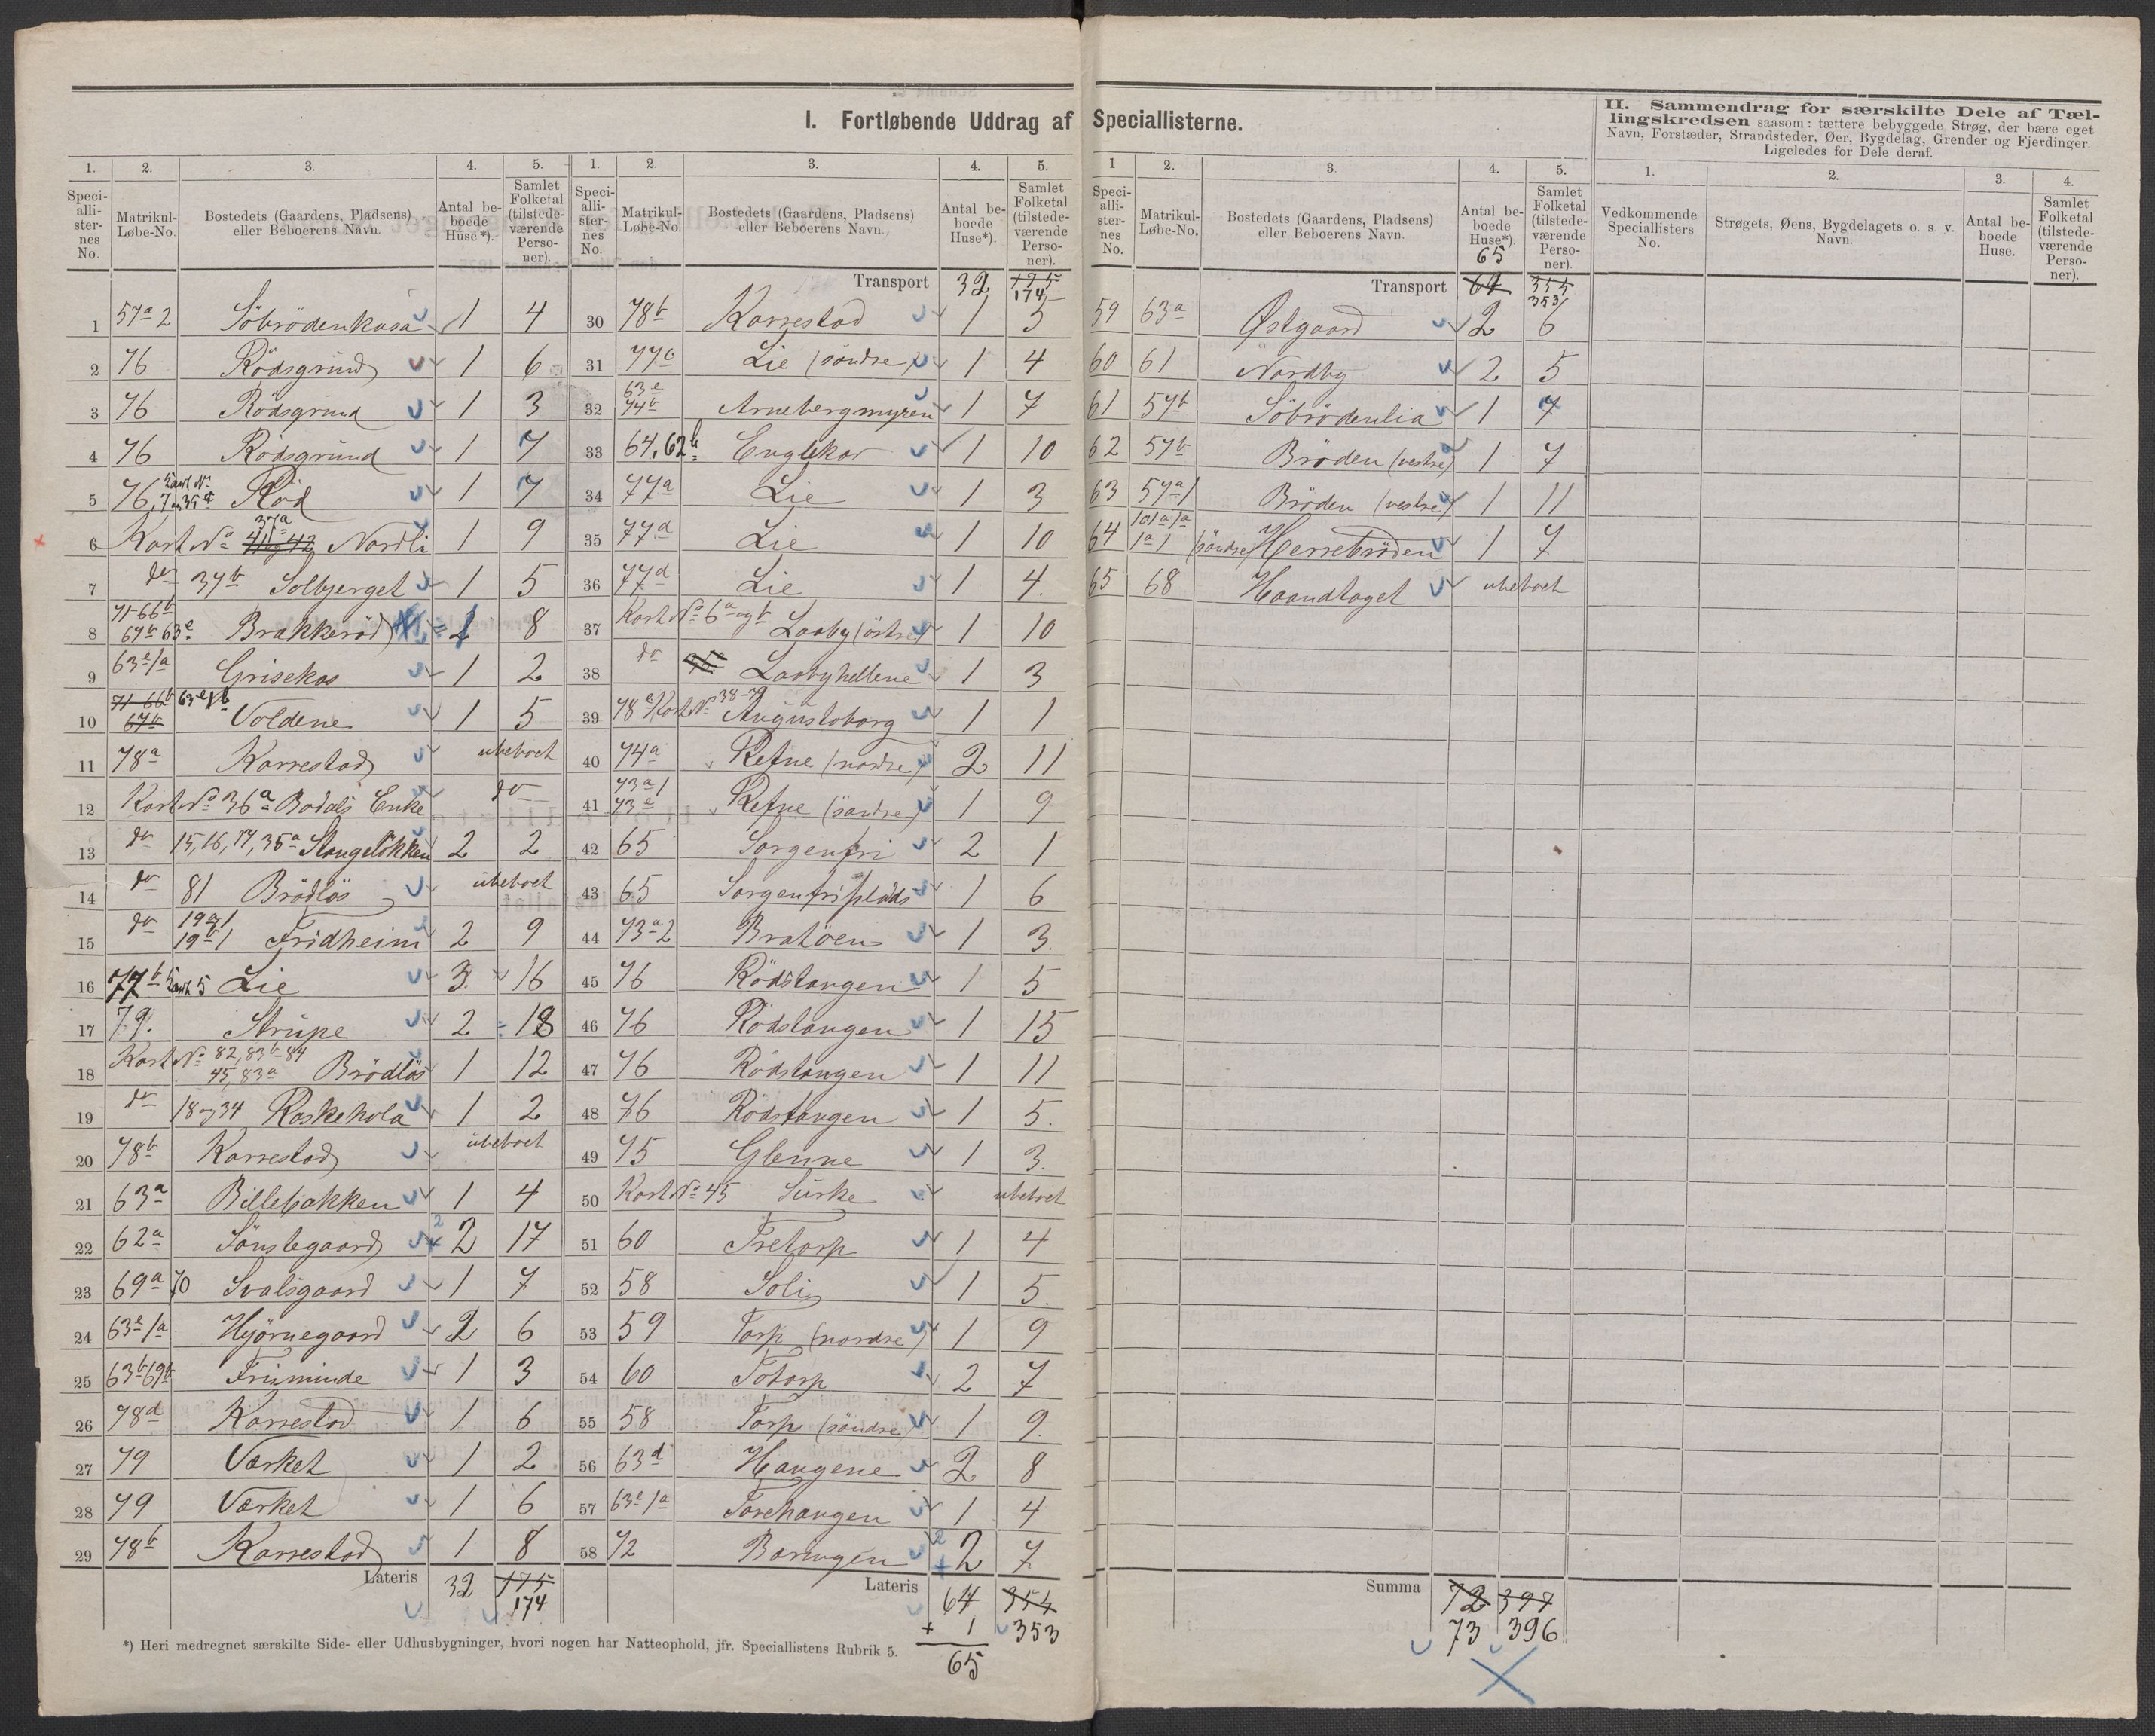 I. Fortløbende Uddrag af Speciallisterne.
II. Sammendrag for særskilte Dele af Tællingskredsen saasom: tættere bebyggede Strøg, der bære eget Navn, Forstæder, Strandsteder, Øer, Bygdelag, Grender og Fjerdinger. Ligeledes for Dele deraf.
1. 2. 3. 4. 5.
Speciallisternes No. Matrikul-Løbe-No. Bostedets (Gaardens, Pladsens) eller Beboerens Navn. Antal beboede Huse*). Samlet Folketal (tilstedeværende Personer).
1 57a2 Söbrödenkasa 1 4
2 76 Rödsgrund 1 6
3 76 Rödsgrund 1 3
4 76 Rödsgrund 1 7
5 76, Kart No 7 35d Röd 1 7
6 Kart No 41 og 42 37a Nordli 1 9
7 do 37b Solbjerget 1 5
8 71-66b 67b 63e Brakkeröd 1 8
9 63e/a Grisekos 1 2
10 71-66b 67b 63e/b Voldene 1 5
11 78a Karrestad ubeboet
12 Kart No 36a Bodals Enke do
13 do 15, 16, 17, 35a Stangelökken 2 2
14 do 81 Brödlös ubeboet
15 do 19a/1 19b/1 Fridheim 2 9
16 77b Kart 5 Lie 3 16
17 79. Strupe 2 18
18 Kart No 82, 83b-84 45, 83a Brödlös 1 12
19 do 18 og 34 Roskehola 1 2
20 78b Karrestad ubeboet
21 63a Billebakken 1 4
22 62a Sönslegaard 2 2 17
23 69a 70 Svalsgaard 1 7
24 63e/a Hjörnegaard 2 6
25 63b 69b Friminde 1 3
26 78d Karrestad 1 6
27 79 Værket 1 2
28 79 Værket 1 6
29 78b Karrestad 1 8
Lateris 32 175
174
1. 2. 3. 4. 5.
Speciallisternes No. Matrikul-Løbe-No. Bostedets (Gaardens, Pladsens) eller Beboerens Navn. Antal beboede Huse*). Samlet Folketal (tilstedeværende Personer).
Transport 32 175
174
30 78b Karrestad 1 5
31 77c Lie (söndre) 1 4
32 63e 74b Arnebergmyren 1 7
33 64, 62b Englekor 1 10
34 77a Lie 1 3
35 77d Lie 1 10
36 77d Lie 1 4.
37 Kart No 6a og b Laaby (östre) 1 10
38 do Laabyhellene 1 3
39 78e Kart No 38-39 Augustoborg 1 1
40 74a Refne (nordre) 2 11
41 73a/1 73c Refne (söndre) 1 9
42 65 Sorgenfri 2 1
43 65 Sorgenfriplads 1 6
44 73a2 Bratöen 1 3.
45 76 Rödstangen 1 5
46 76 Rödstangen 1 15
47 76 Rödstangen 1 11
48 76 Rödstangen 1 5.
49 75 Glenne 1 3.
50 Kart No 45 Surke ubeboet
51 60 Tretorp 1 4
52 58 Soli 1 5.
53 59 Torp (nordre) 1 9
54 60 Totorp 2 7
55 58 Torp (söndre) 1 9.
56 63d Haugene 2 8
57 63e/a Torehaugen 1 4
58 72 Barungen 2 2 7
Lateris 64 354
+ 1 353
65
1 2. 3. 4. 5.
Speciallisternes No. Matrikul-Løbe-No. Bostedets (Gaardens, Pladsens) eller Beboerens Navn. Antal beboede Huse*). Samlet Folketal (tilstedeværende Personer).
65
Transport 64 355
353
59 63a Østgaard 2 6
60 61 Nordby 2 5
61 57b Söbrödenlia 1 7
62 57b Bröden (vestre) 1 7
63 57a/1 Bröden (vestre) 1 11
64 101a/a 1a1 (söndre) Herrebröden 1 7
65 68 Haandtaget ubeboet
Summa 72 397
73 396
1. 2. 3. 4.
Vedkommende Speciallisters No. Strøgets, Øens, Bygdelagets o. s. v. Navn. Antal beboede Huse. Samlet Folketal (tilstedeværende Personer).
*) Heri medregnet særskilte Side- eller Udhusbygninger, hvori nogen har Natteophold, jfr. Speciallistens Rubrik 5.